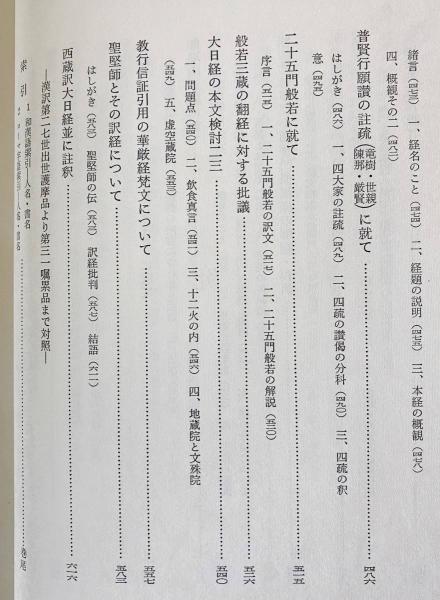 緒言(四七三) 一、経名のこと(四七四) 二、経題の説明(四七五) 三、本経の概観(四七八)
四、概観その二(四八二)
普賢行願讃の註疏(竜樹・世親 陳那・厳賢)に就て……四八六
はしがき(四八六) 一、四大家の註疏(四八九) 二、四疏の讃偈の分科(四九〇) 三、四疏の釈
意(四九五)
二十五門般若に就て……五一五
序言(五一五) 一、二十五門般若の訳文(五一七) 二、二十五門般若の解説(五二〇)
般若三蔵の翻経に対する批議……五二六
大日経の本文検討二三……五四〇
一、問題点(五四〇) 二、飲食真言(五四二) 三、十二火の内(五四六) 四、地蔵院と文殊院
(五四九) 五、虚空蔵院(五五三)
教行信証引用の華厳経梵文について……五五七
聖堅師とその訳経について……五八三
はしがき(五八三) 聖堅師の伝(五八三) 訳経批判(五八七) 結語(六一二)
西蔵訳大日経並に註釈……六一六
―漢訳第二七世出世護摩品より第三一嘱累品まで対照―
索引 1 和漢語索引―人名・書名